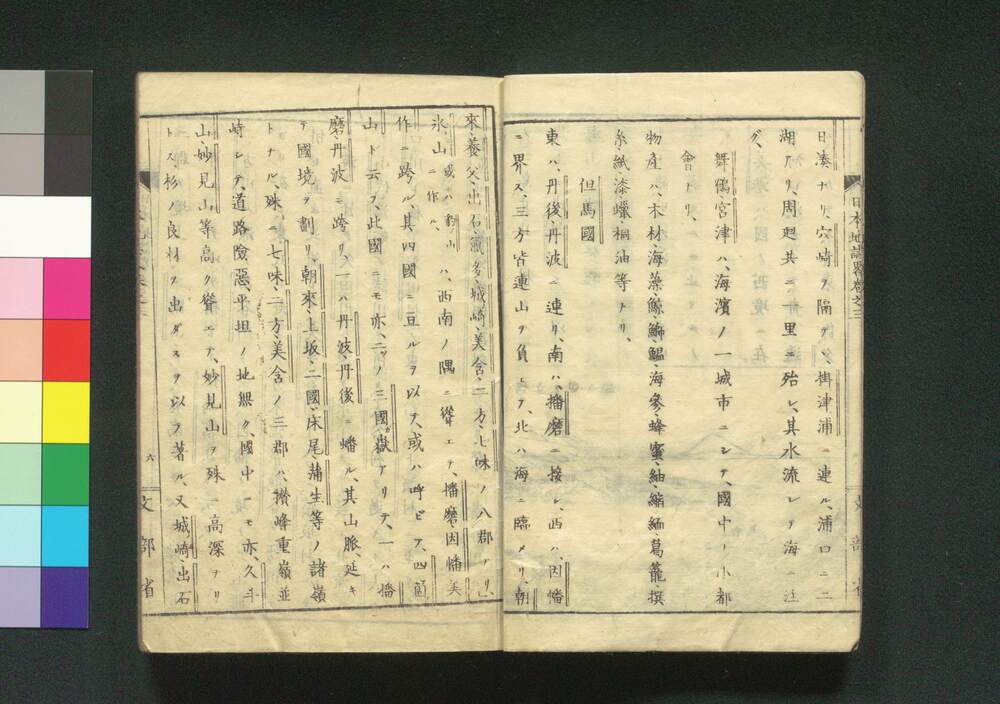 日湊ナリ、穴崎ヲ隔テヽ掛津浦ニ連ル、浦口ニ二
湖アリ、周廻共ニ一里ニ殆シ、其水流レヲ海ニ注
グ、
舞鶴、宮津ハ、海濱ノ一城市ニシテ、國中ノ小都
會ナリ、
物產ハ、木材、海藻、鯨、鰤、鰮、海參、蜂蜜、紬、縮緬、葛籠、撰
糸、紙、漆、蠟、桐油等トリ、
但馬國
東ハ、丹後、丹波ニ連リ、南ハ、播磨ニ接シ、西ハ、因幡
ニ界ス、三方皆連山ヲ負ヒテ、北ハ海ニ臨メリ、朝
來、養父、出石、氣多、城崎、美含、二方、七味ノ八郡アリ、
氷山 或ハ 山ニ作ル、ハ、西南ノ隅ニ聳エテ、播磨因幡美
作ニ跨ル、其四國ニ亘ルヲ以テ、或ハ呼ビテ、四箇
山ト云フ、此國ニモ亦、二ツノ三國嶽アリテ、一ハ播
磨、丹波ニ跨リ、一ハ丹波、丹後ニ蟠ル、其山脈延キ
テ國境ヲ劃リ、朝來、上坂、二國、床尾、蒲生等ノ諸嶺
トナル、殊ニ七味、二方、美含ノ三郡ハ、攅峰重嶺並
峙シテ、道路險惡、平坦ノ地無ク、國中ニモ亦、久斗
山、妙見山等高ク聳エテ、妙見山ヲ殊ニ高深ヲリ
トス、杉ノ良材ヲ出ダスヲ以テ著ル、又城崎、出石
日本地誌略卷之三
六
文部省
文部省